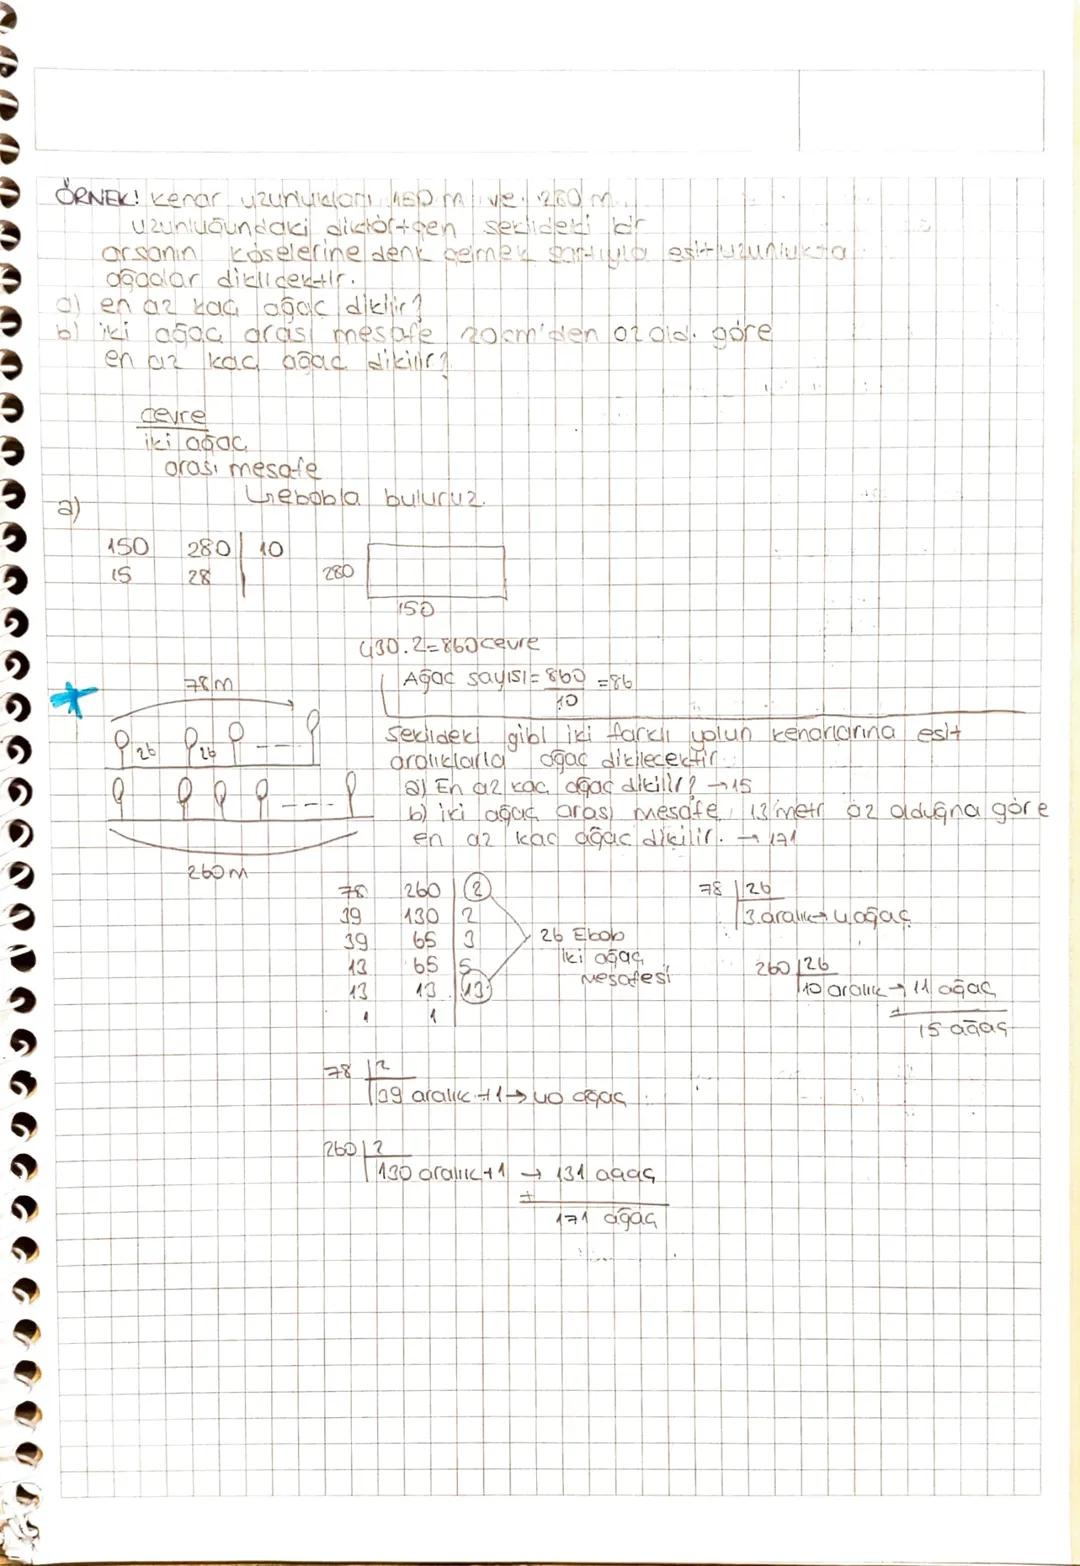 ÖRNEK! Kenar uzunlukları 150 m ve 280 m
uzunluğundaki dikdörtgen şeklideki bir
arsanın köşelerine denk gelmek şartıyla eşit uzunlukta
ağaçlar dikilicektir.
a) en az kaç ağaç dikilir?
b) iki ağaç arası mesafe 20cm'den az old. göre
en az kaç ağaç dikilir?
çevre
iki ağaç
arası mesafe
↳ebobla buluruz.
a)
150 280 | 10
15 28
280
150
430.2=860 çevre
Ağaç sayısı = 860/10 = 86
78 m
26 26
260 m
Şekildeki gibi iki farklı yolun kenarlarına eşit
aralıklarla ağaç dikilecektir.
a) En az kaç ağaç dikilir? →15
b) iki ağaç arası mesafe, 13 metr az olduğna göre
en az kaç ağaç dikilir. → 171
78 260 | 2
39 130 | 2
39 65 | 3
13 65 | 5
13 13 | 13
1 1
26 Ebob
iki ağaç
mesafesi
78 | 26
3 aralık→ 4 ağaç
260 | 26
10 aralık → 11 ağaç
+
15 ağaç
78 | 2
39 aralık +1→ 40 ağaç
260 | 2
130 aralık +1 → 131 ağaç
+
171 ağaç